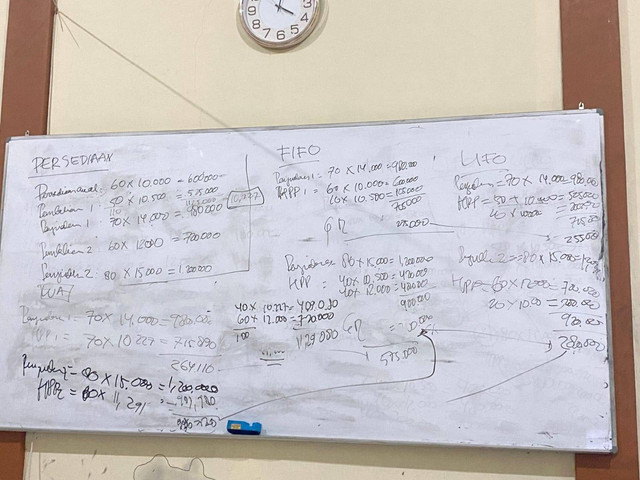 PERSEDIAAN
Persediaan awal: 60 x 10.000 = 600.000
Pembelian 1: 50 x 10.500 = 525.000
110
Penjualan 1: 70 x 14.000 = 980.000
10,227
Pembelian 2: 60 x 12.000 = 720.000
Penjualan 2: 80 x 15.000 = 1.200.000
Penjualan 1 = 70 x 14.000 = 980.000
HPP 1 = 70 x 10.227 = 715.890
264.110
Penjualan 2 = 80 x 15.000 = 1,200,000
HPP2 = 80 x 11,291
FIFO
Penjualan 1: 70 x 14.000 = 980.000
HPP 1 = 60 x 10.000 = 600.000
10 x 10.500 = 105.000
705.000
275.000
Penjualan 80 x 15.000 = 1.200.000
HPP = 40 x 10.500 = 420.000
40 x 12.000 = 480.000
900.000
40 x 10.227 = 409.080
60 x 12.000 = 720.000
100
1.129.080
575.000
LIFO
Penjualan = 70 x 14.000 = 980.000
HPP = 50 x 10.500 = 525.000
20 x 10.000 = 200.000
725.000
255.000
Penjualan 2 = 80 x 15.000 =
HPP = 60 x 12.000 = 720.000
20 x 10.000 = 200.000
920.000
280.000